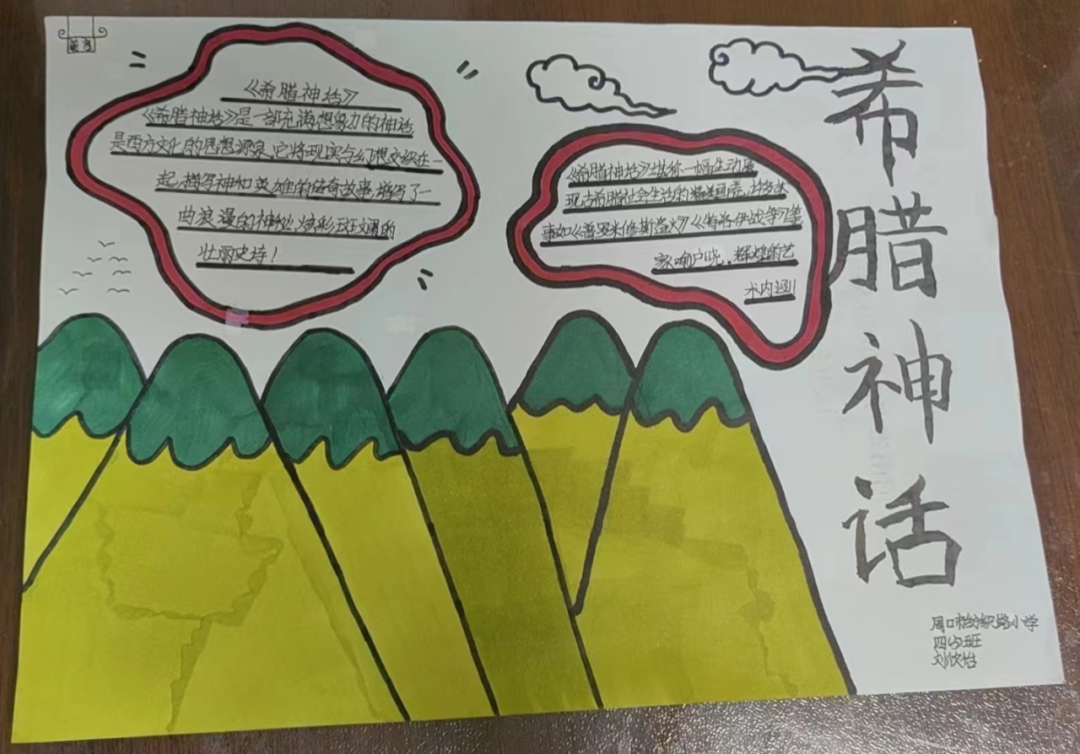 《希腊神话》
《希腊神话》是一部充满想象力的神话
是西方文化的思想源泉,它将现实与幻想交织在一
起,描写神和英雄的传奇故事,谱写了一
曲浪漫的神秘,炫彩斑斓的
壮丽史诗!
《希腊神话》堪称一幅生动展
现古希腊社会生活的精美画卷,
事如《普罗米修斯盗火》《特洛伊战争》等
家喻户晓,辉煌的艺
术内涵
希腊神话
周口市纺织路小学
四班
刘欣怡